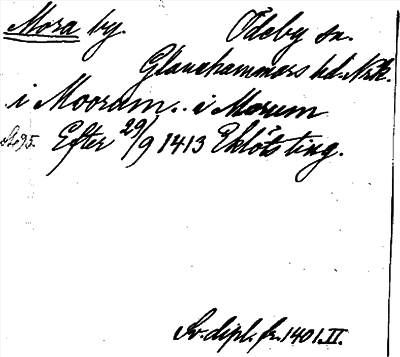 Mora by. Ödeby sn.
Glanshammars hd. Nrk.
i Mooram.. i Morum
Efter 29/9 1413 Eklöts ting.
Sv. dipl. fr. 1401. II.